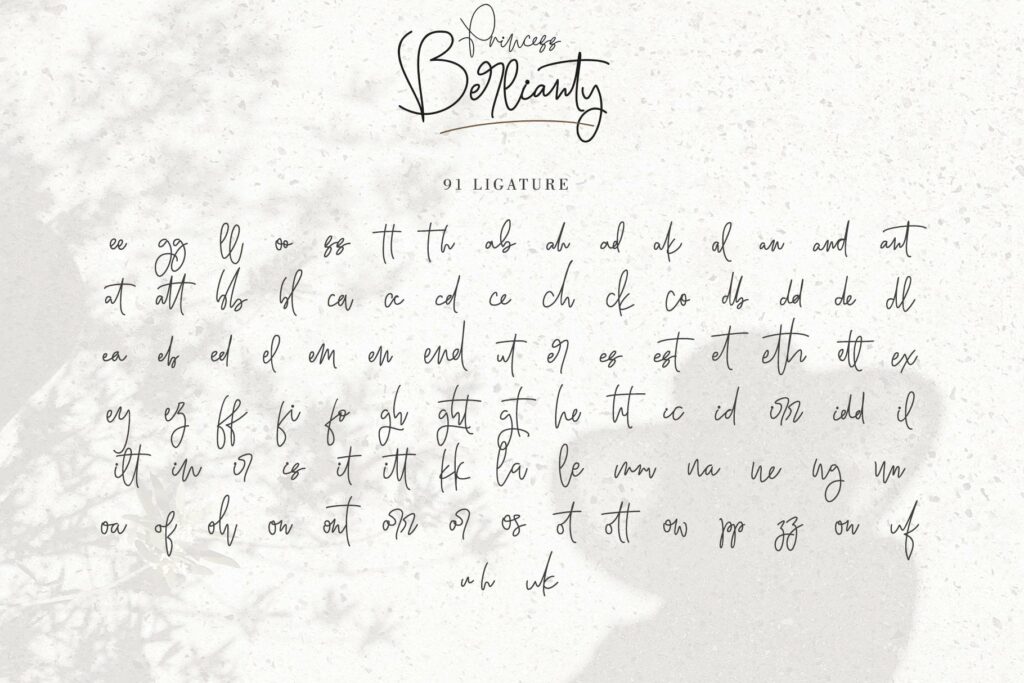 Princess
Berlianty
91 LIGATURE
ee gg ll oo ss tt th ab ah ad ak al an and ant
at att bb bl ca cc cd ce ch ck co db dd de dl
ea eb ed el em en end ut er es est et eth ett ex
ey ez ff fi fo gh ght gt he ht ic id irr idd il
ilt in ir is it itt kk la le mm na ne ng nn
oa of oh on ont orr or os ot ott ow pp zz on uf
uh uk